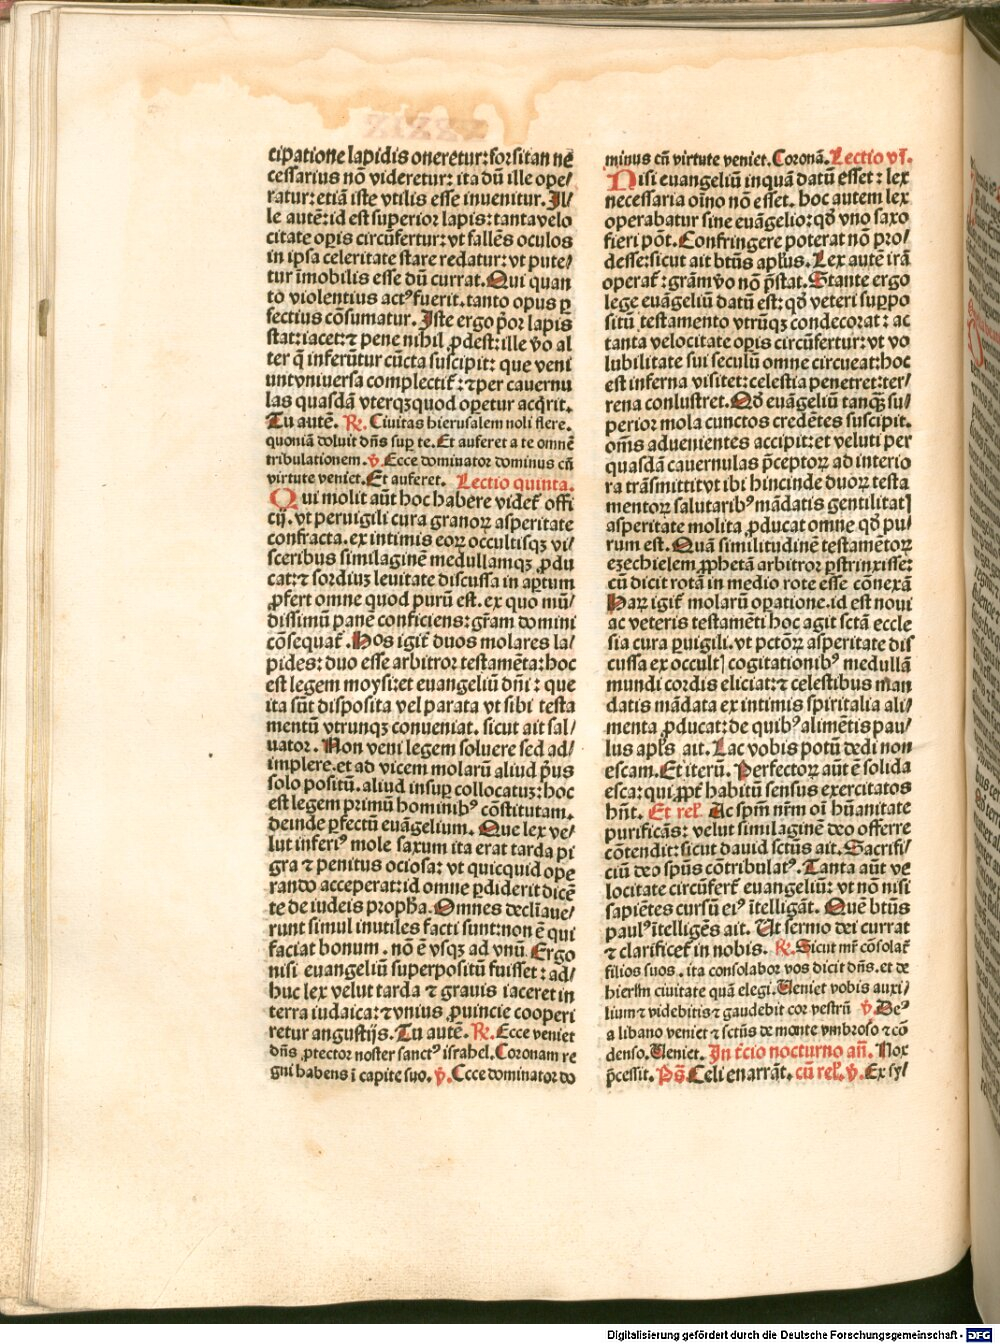 cipatione lapidis oneretur: forsitan nē
cessarius nō videretur: ita dū ille ope/
ratur: etiā iste vtilis esse inuenitur. Il/
le autē: id est superior lapis: tanta velo
citate oꝑis circūfertur: vt fallēs oculos
in ipsa celeritate stare redatur: vt pute/
tur īmobilis esse dū currat. Qui quan
to violentius actꝰ fuerit. tanto opus ꝑ
fectius cōsumatur. Iste ergo p̄or lapis
stat: iacet: ⁊ pene nihil ꝓdest: ille v̄o al
ter q̄ inferūtur cūcta suscipit: que veni
unt vniuersa complectit᷑: ⁊ per cauernu
las quasdā vterqꝫ quod oꝑetur acq̄rit.
Tu autē. ℟. Ciuitas hierusalem noli flere.
quoniā doluit dn̄s suꝑ te. Et auferet a te omnē
tribulationem. ℣. Ecce dominator dominus cū
virtute veniet. Et auferet. Lectio quinta.
Qui molit aūt hoc habere videt᷑ offi
cij. vt peruigili cura granoꝝ asperitate
confracta. ex intimis eoꝝ occultisqꝫ vi/
sceribus similaginē medullamqꝫ ꝓdu
cat: ⁊ sordiuꝫ leuitate discussa in aꝑtum
ꝓfert omne quod purū est. ex quo mū/
dissimū panē conficiens: gr̄am domini
cōsequat᷑. Hos igit᷑ duos molares la/
pides: duo esse arbitror testamēta: hoc
est legem moysi: et euangeliū dn̄i: que
ita sūt disposita vel parata vt sibi testa
mentū vtrunqꝫ conueniat. sicut ait sal/
uator. Non veni legem soluere sed ad/
implere. et ad vicem molarū aliud p̄us
solo positū. aliud insuꝑ collocatuꝫ: hoc
est legem primū hominibꝰ cōstitutam.
deinde ꝑfectū euāgelium. Que lex ve/
lut inferiꝰ mole saxum ita erat tarda pi
gra ⁊ penitus ociosa: vt quicquid ope
rando acceperat: id omne ꝑdiderit dicē
te de iudeis propħa. Omnes declīaue/
runt simul inutiles facti sunt: non ē qui
faciat bonum. nō ē vsqꝫ ad vnū. Ergo
nisi euangeliū superpositū fuisset: ad/
huc lex velut tarda ⁊ grauis iaceret in
terra iudaica: ⁊ vnius ꝓuincie cooperi
retur angustijs. Tu autē. ℟. Ecce veniet
dn̄s ꝓtector noster sanctꝰ israhel. Coronam re
gni habens ī capite suo. ℣. Ecce dominator do
minus cū virtute veniet. Coronā. Lectio vj.
Nisi euangeliū inquā datū esset: lex
necessaria oīno nō esset. hoc autem lex
operabatur sine euāgelio: qd̄ vno saxo
fieri pōt. Confringere poterat nō pro/
desse: sicut ait btūs apl̄us. Lex autē irā
operat᷑: grām v̄o nō p̄stat. Stante ergo
lege euāgeliū datū est: qd̄ veteri suppo
sitū testamento vtrūqꝫ condecorat: ac
tanta velocitate oꝑis circūfertur: vt vo
lubilitate sui seculū omne circueat: hoc
est inferna visitet: celestia penetret: ter/
rena conlustret. Qd̄ euāgeliū tanqꝫ su/
perior mola cunctos credētes suscipit.
om̄s aduenientes accipit: et veluti per
quasdā cauernulas p̄ceptoꝝ ad interio
ra trāsmittit vt ibi hincinde duoꝝ testa
mentoꝝ salutaribꝰ mādatis gentilitatꝭ
asperitate molita ꝓducat omne qd̄ pu/
rum est. Quā similitudinē testamētoꝝ
ezechielem ꝓphetā arbitror ꝑstrinxisse:
cū dicit rotā in medio rote esse cōnexā
Haꝝ igit᷑ molarū oꝑatione. id est noui
ac veteris testamēti hoc agit sctā eccle
sia cura ꝑuigili. vt pctōꝝ asperitate dis
cussa ex occultꝭ cogitationibꝰ medullā
mundi cordis eliciat: ⁊ celestibus man
datis mādata ex intimis spiritalia ali/
menta ꝓducat: de quibꝰ alimētis pau/
lus apl̄s ait. Lac vobis potū dedi non
escam. Et iterū. Perfectoꝝ aūt ē solida
esca: qui ꝓpt᷑ habitū sensus exercitatos
hn̄t. Et rel̄. Ac spm̄ nr̄m oī hūanitate
purificās: velut similaginē deo offerre
cōtendit: sicut dauid sctūs ait. Sacrifi/
ciū deo spūs cōtribulatꝰ. Tanta aūt ve
locitate circūfert᷑ euangeliū: vt nō nisi
sapiētes cursū eiꝰ ītelligāt. Quē btūs
paulꝰ ītelligēs ait. Ut sermo dei currat
⁊ clarificet᷑ in nobis. ℟. Sicut mr̄ cōsolat᷑
filios suos. ita consolabor vos dicit dn̄s. et de
hierl̄m ciuitate quā elegi. Ueniet vobis auxi/
lium ⁊ videbitis ⁊ gaudebit cor vestrū ℣. Deꝰ
a libano veniet ⁊ sctūs de monte vmbroso ⁊ cō
denso. Ueniet. In t̄cio nocturno an̄. Nox
p̄cessit. Ps̄. Celi enarrāt. cū rel̄. ℣. Ex sy/
Digitalisierung gefördert durch die Deutsche Forschungsgemeinschaft - DFG